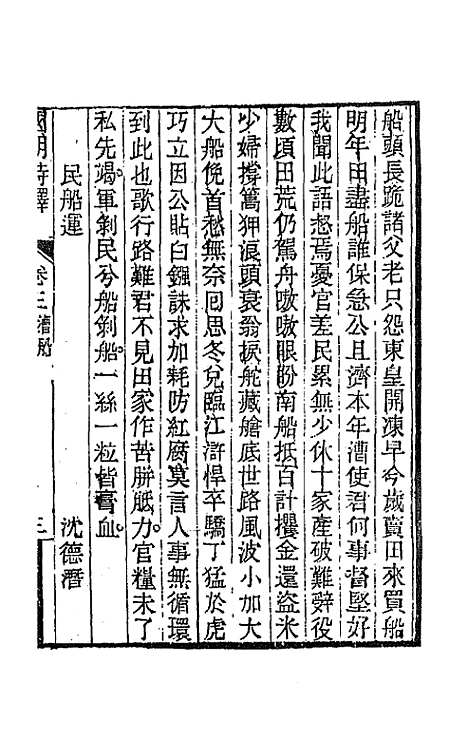 船頭長跪諸父老只怨東皇開凍早今歲賣田來買船
明年田盡船誰保急公且濟本年漕使君何事督堅好
我聞此語愁焉憂官差民累無少休十家產破難辭役
數頃田荒仍駕舟嗷嗷眼盼南船抵百計攫金還盜米
少婦撐篙狎浪頭衰翁捩舵藏艙底世路風波小加大
大船俛首愁無奈囘思冬兌臨江滸悍卒驕丁猛於虎
巧立因公貼白鏹誅求加耗防紅腐莫言人事無循環
到此也歌行路難君不見田家作苦胼胝力官糧未了
私先竭軍剝民兮船剝船一絲一粒皆膏血
民船運 沈德潛
國朝詩鐸 卷三漕船 三